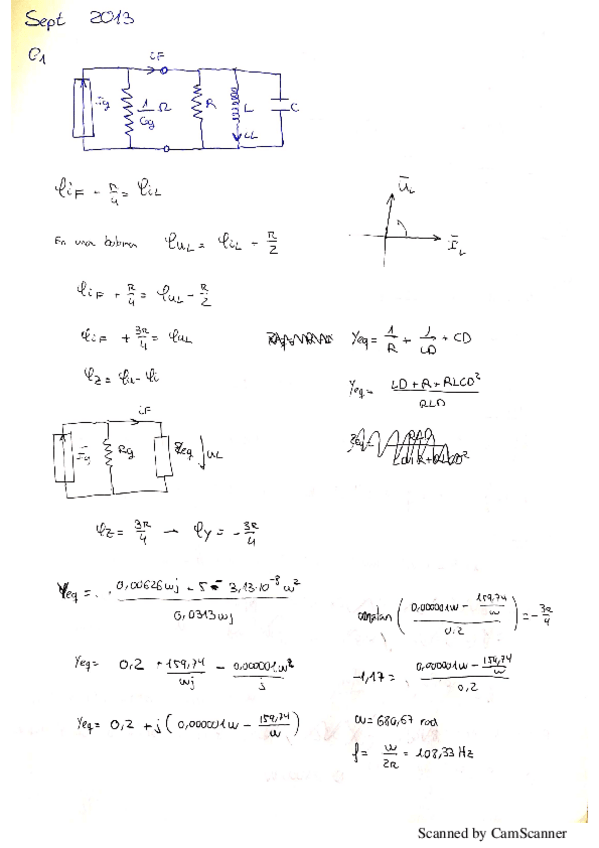 Sept 2013
C1
iF
Ig
1/Gg Ω
R
L
uL
C
φiF + π/4 = φiL
UL
IL
En una bobina φuL = φiL + π/2
φiF + π/4 = φuL - π/2
φiF + 3π/4 = φuL
Yeq = 1/R + 1/LD + CD
φZ = φu - φi
Yeq = LD + R + RLCD²/RLD
iF
Ig
Rg
Zeq
uL
φZ = 3π/4 → φY = -3π/4
Yeq = 0,00626wj + 5 - 3,13·10⁻⁸w²/0,0313wj
arctan (0,000001w - 159,74/w / 0.2) = -3π/4
Yeq = 0,2 + 159,74/wj - 0,000001w²/j
-1,17 = 0,000001w - 159,74/w / 0,2
Yeq = 0,2 + j (0,000001w - 159,74/w)
w = 680,67 rad
f = w/2π = 108,33 Hz
Scanned by CamScanner